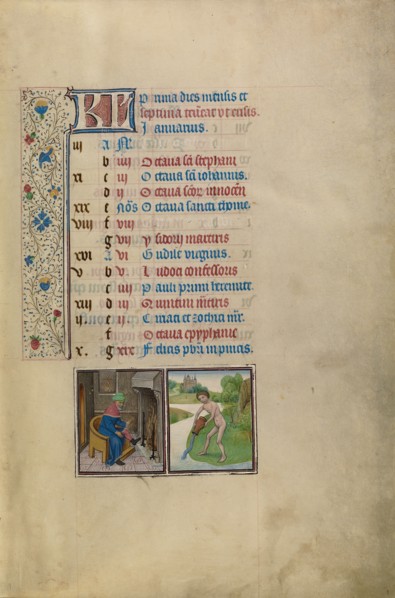 KL Prima dies mensis et
septima truncat ut ensis.
Januarius.
iii a
b iiii Octava sci stephani
xi c iii Octava sci iohannis.
d ii Octava scor innocen
xix e Nos Octava sancti
viii f viii
g vii ysidori martiris
xvi a vi Gudile virginis.
v b v Ludoci confessoris
c iiii Pauli primi heremite.
xiii d iii Quintini
ii e ii
f Octava epyphanie
x. g xix Felicis pbri in pincis.